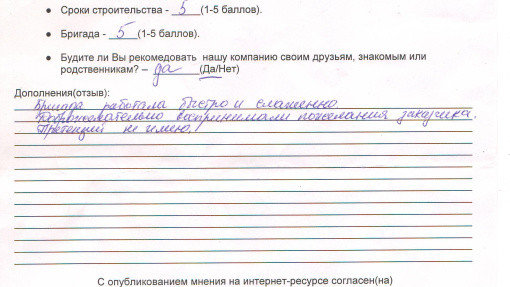 • Сроки строительства - 5 (1-5 баллов).
• Бригада - 5 (1-5 баллов).
• Будите ли Вы рекомедовать нашу компанию своим друзьям, знакомым или
родственникам? – да (Да/Нет)
Дополнения(отзыв):
Бригада работала быстро и слаженно.
Доброжелательно воспринимали пожелания заказчика.
Претензий не имею!
С опубликованием мнения на интернет-ресурсе согласен(на)